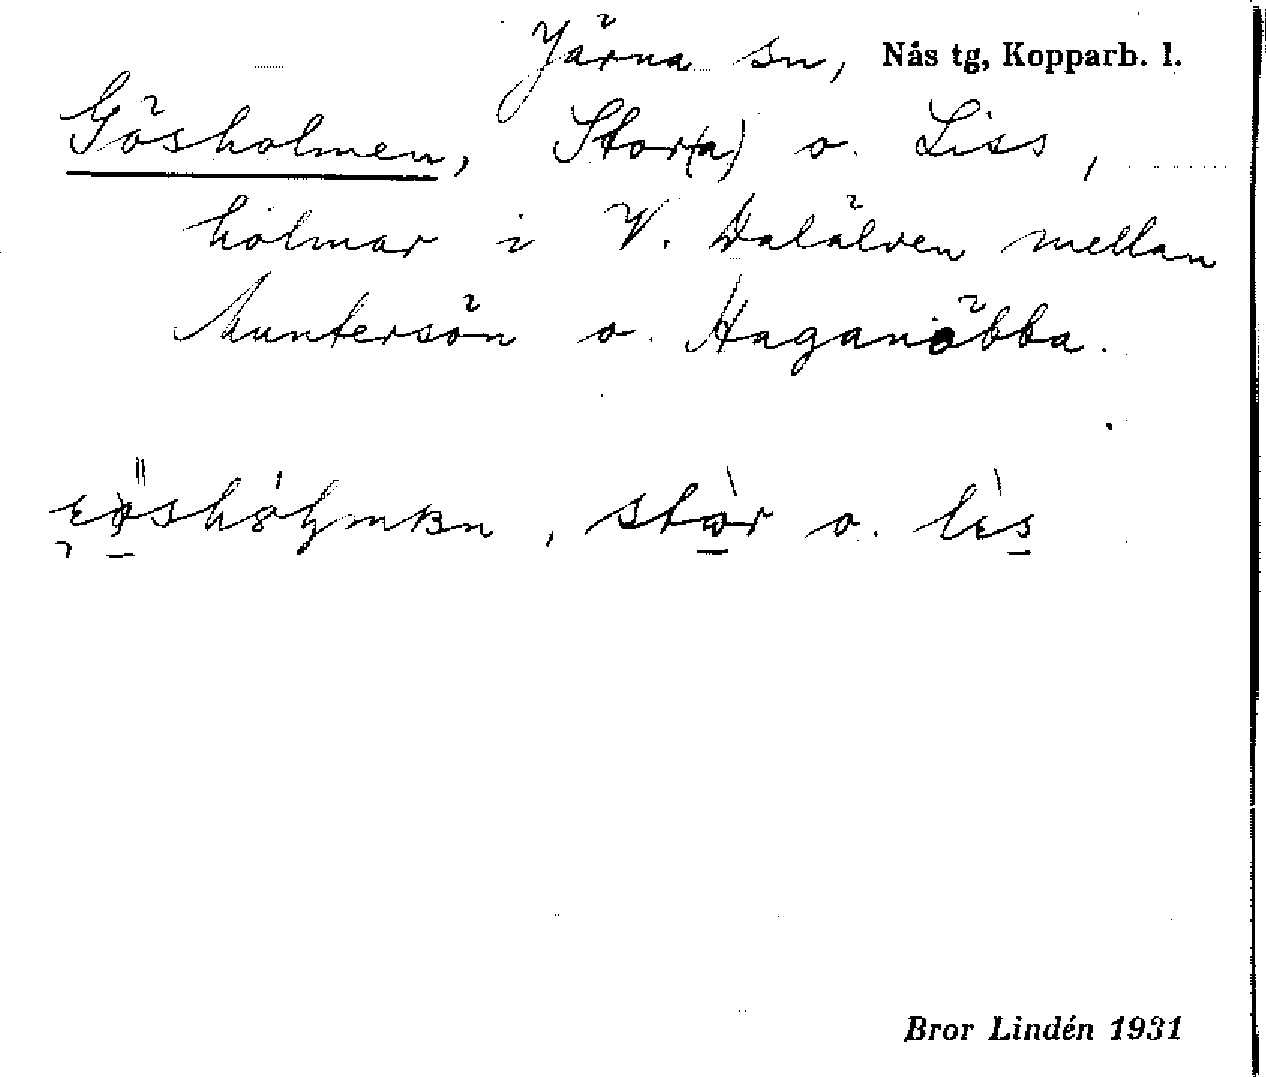 Järna sn, Nås tg, Kopparb. l.
Gösholmen, Stor(a) o. Liss,
holmar i V. Dalälven mellan
Muntersön o. Haganäbba.
, stòr o. lìs
Bror Lindén 1931